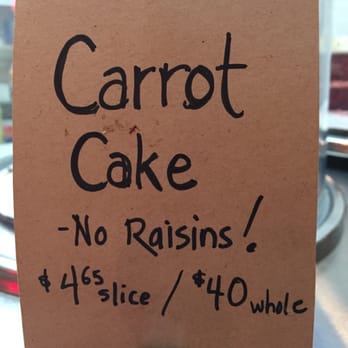 Carrot
Cake
-No Raisins!
$4.65 slice / $40 whole